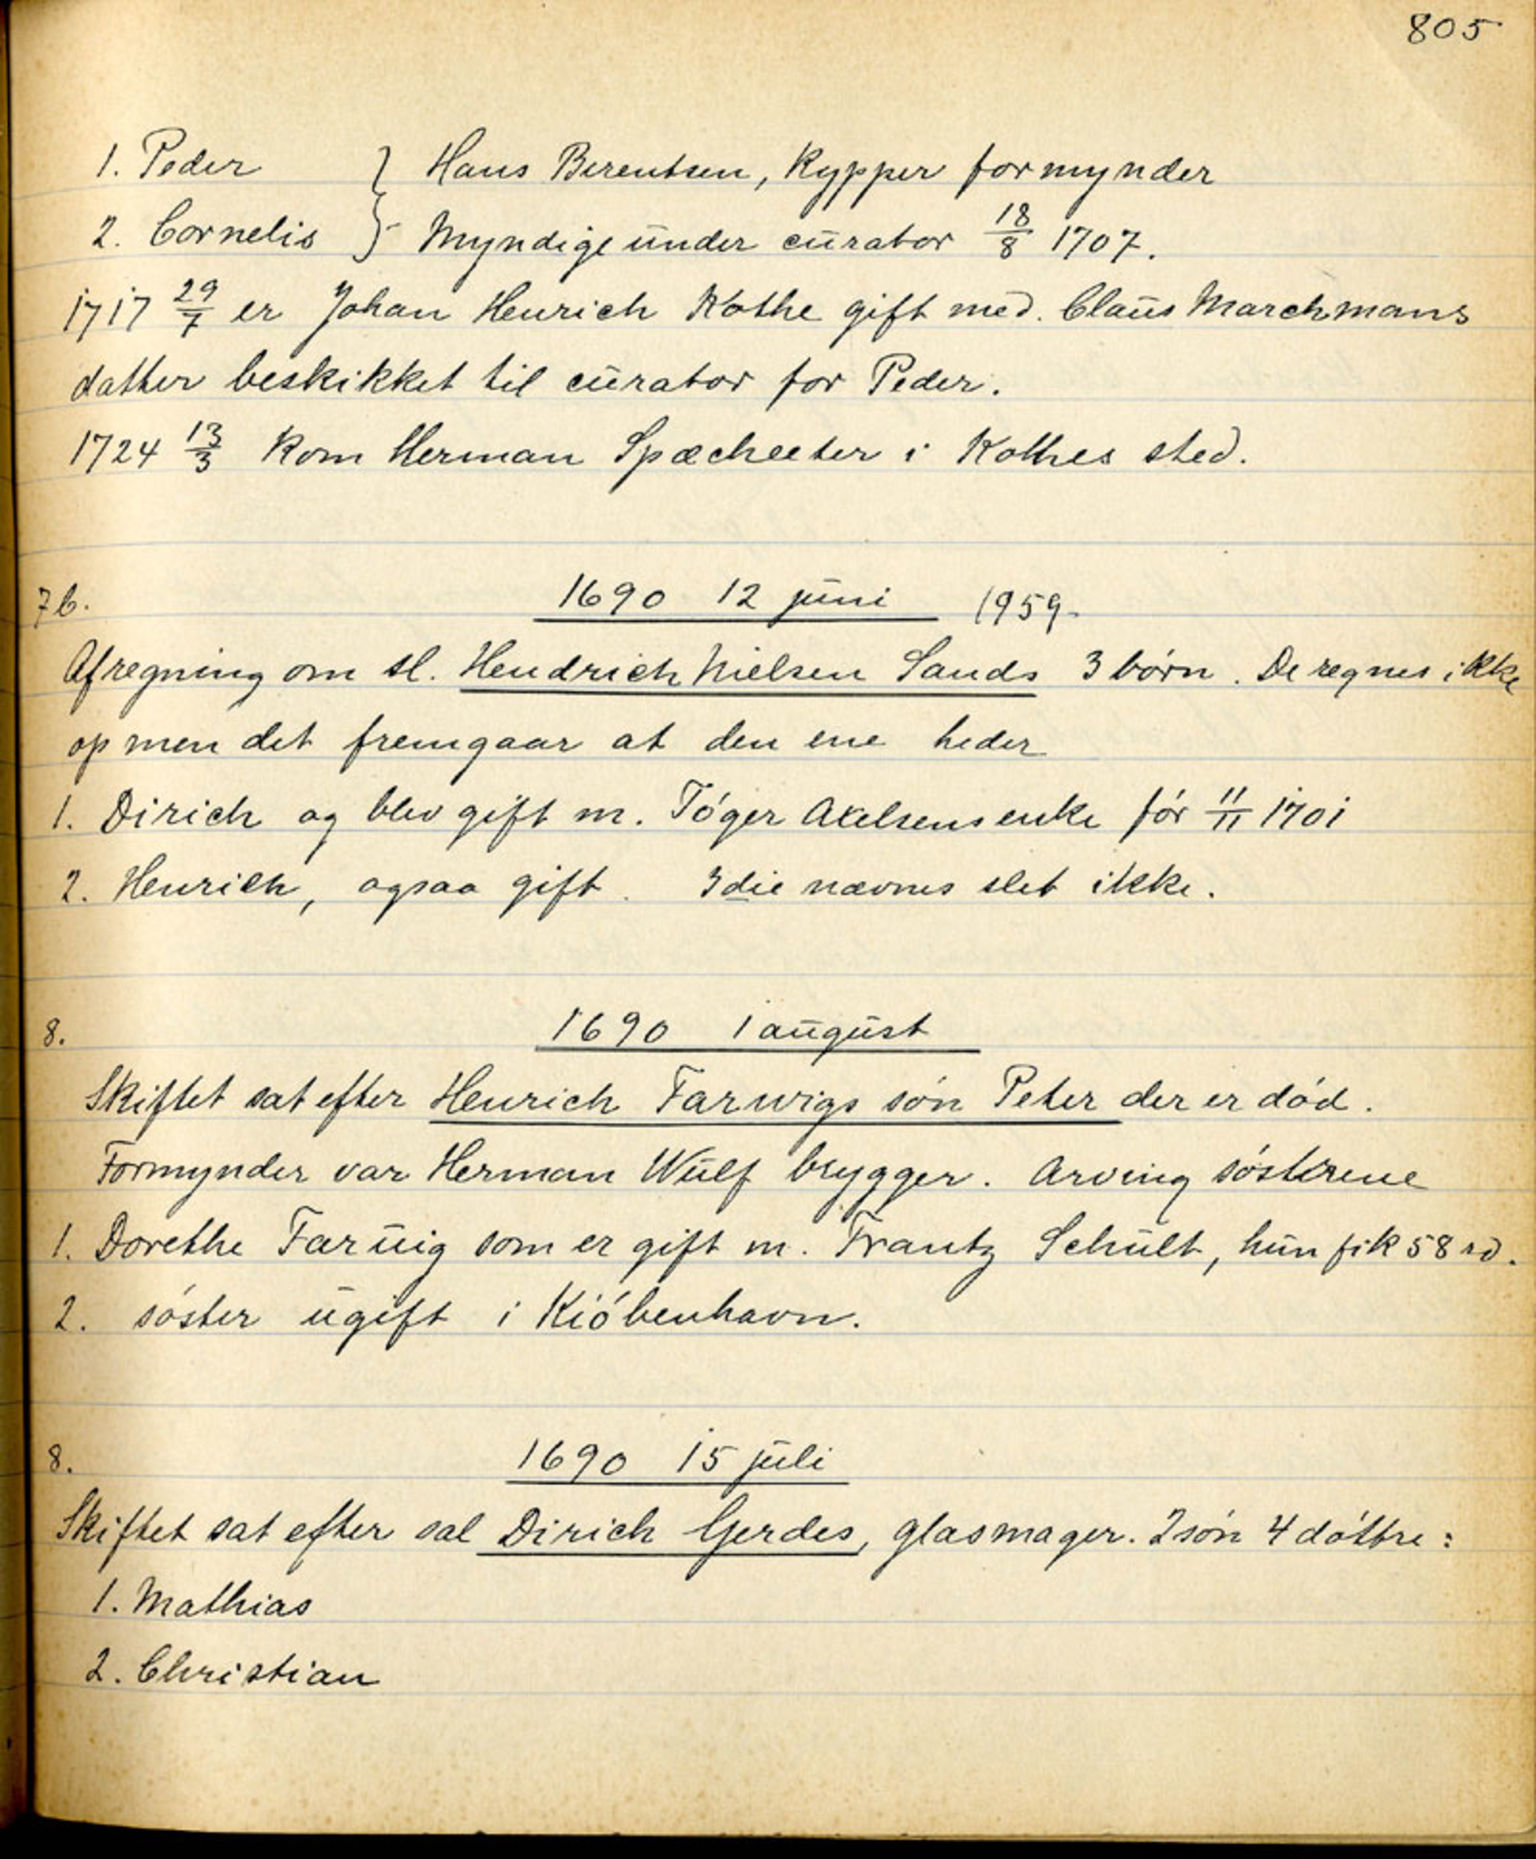 805
1. Peder } Hans Berentsen, Kypper formynder
2. Cornelis } Myndige under curator 18/8 1707.
1717 29/7 er Johan Henrich Kothe gift med. Claus Marchmans
datter beskikket til curator for Peder.
1724 13/3 kom Herman Spæcheeter i Kothes sted.
7b. 1690 12 juni 1959.
Afregning om sl. Hendrich Nielsen Sands 3 børn. De regnes ikke
op men det fremgaar at den ene heder
1. Dirich og blev gift m. Tóger Axelsens enke fór 11/11 1701
2. Henrich, ogsaa gift. 3die nævnes slet ikke.
8. 1690 1 august
Skiftet sat efter Henrich Farwigs són Peter der er dód.
Formynder var Herman Wulf brygger. Arving sósterene
1. Dorethe Faruig som er gift m. Frantz Schult, hun fik 58 rd.
2. sóster ugift i Kióbenhavn.
8. 1690 15 juli
Skiftet sat efter sal Dirich Gerdes, glasmager. 2 són 4 dóttre:
1. Mathias
2. Christian